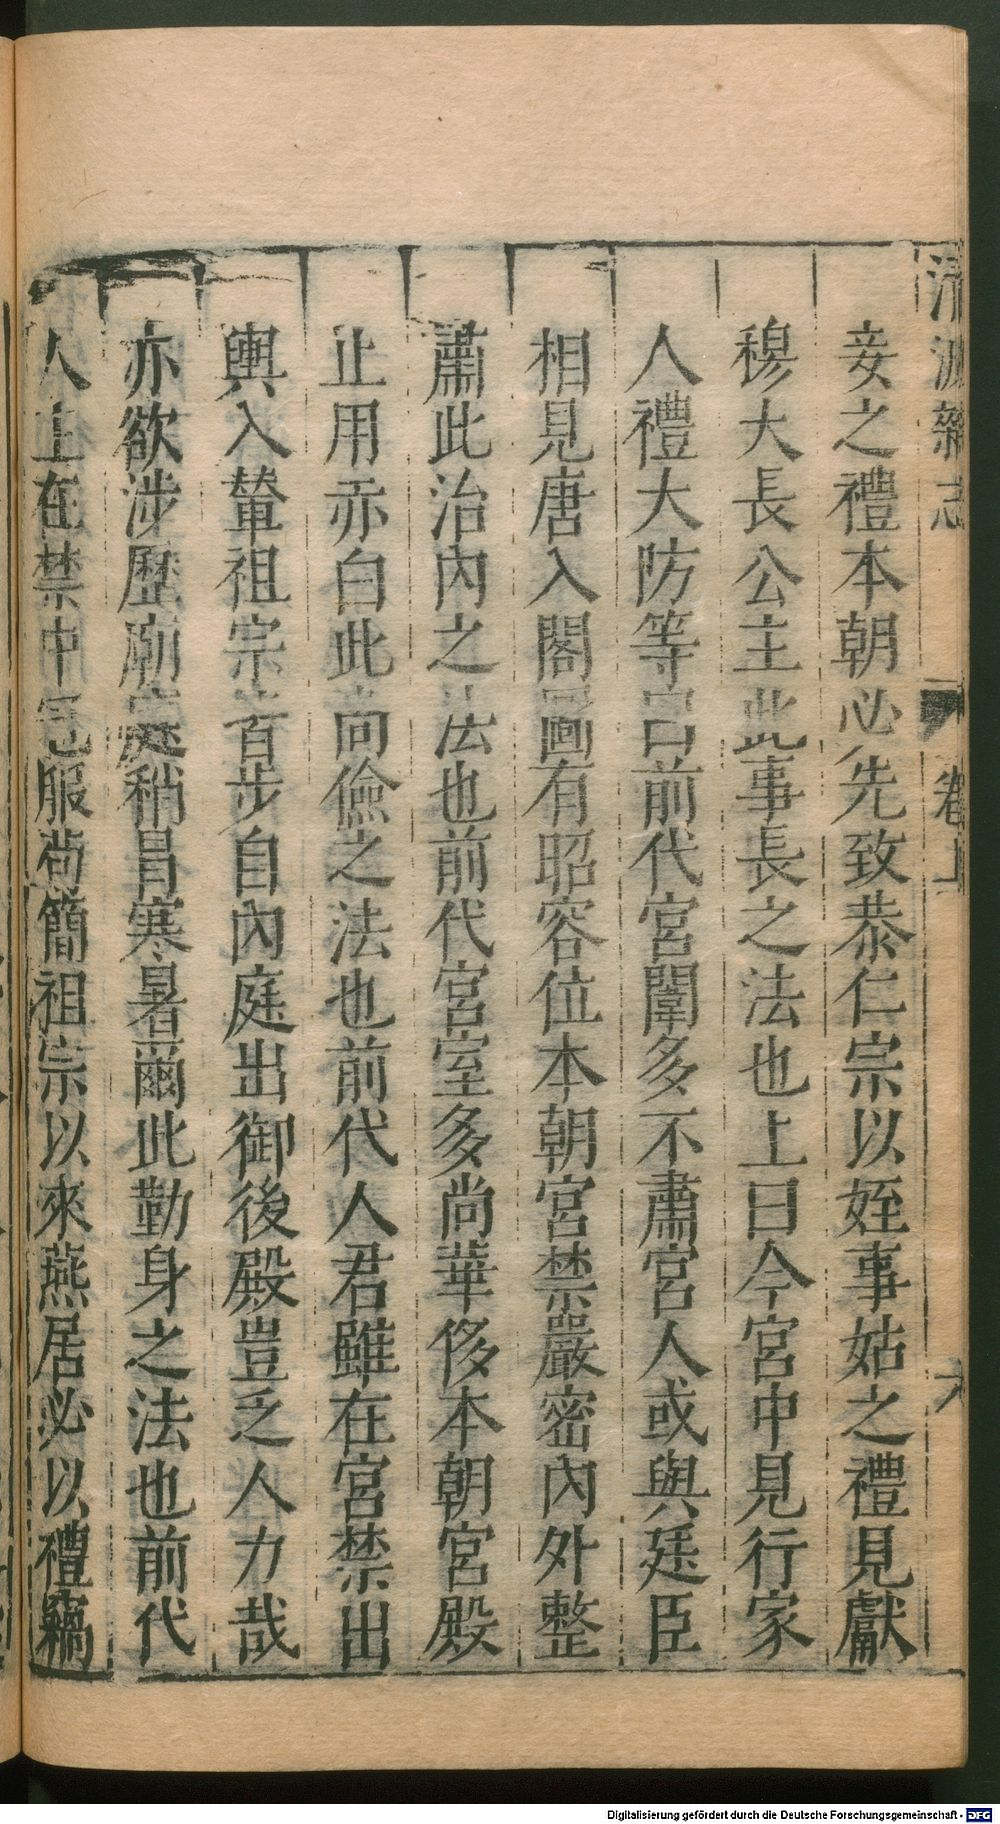 清波雜志 卷上 六
妾之禮本朝必先致恭仁宗以姪事姑之禮見獻
穆大長公主此事長之法也上曰今宮中見行家
人禮大防等曰前代宮闈多不肅宮人或與廷臣
相見唐入閤圖有昭容位本朝宮禁嚴密內外整
肅此治內之法也前代宮室多尚華侈本朝宮殿
止用赤白此尚儉之法也前代人君雖在宮禁出
輿入輦祖宗皆步自內庭出御後殿豈乏人力哉
亦欲涉歷廟庭稍冒寒暑爾此勤身之法也前代
人主在禁中冠服苟簡祖宗以來燕居必以禮竊
Digitalisierung gefördert durch die Deutsche Forschungsgemeinschaft - DFG